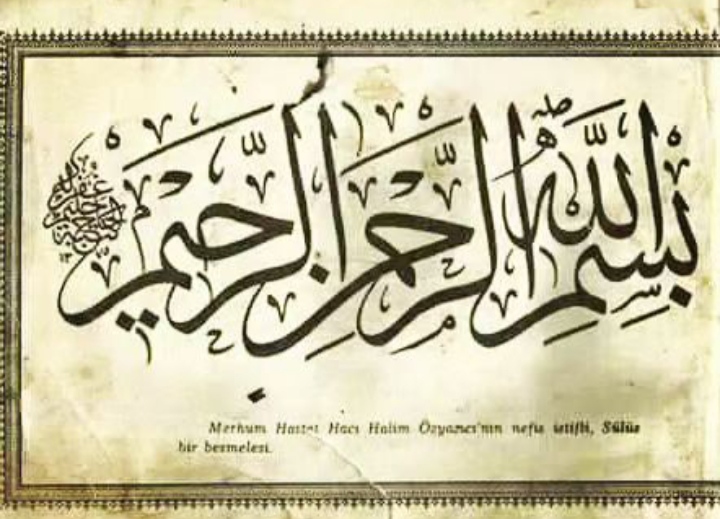 بِسْمِ اللّٰهِ الرَّحْمٰنِ الرَّحِيمِ
Merhum Hattat Hacı Halim Özyazıcı'nın nefis istifli, Sülüs
bir besmelesi.